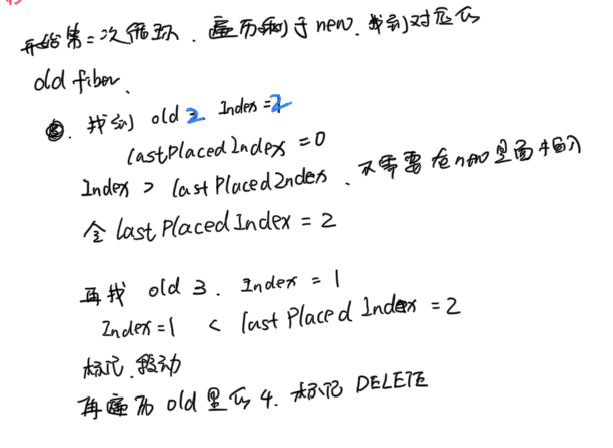 开始第二次循环. 遍历剩于new. 找到对应的
old fiber.
③. 找到 old 2 Index=2
lastPlacedIndex = 0
Index > lastPlacedIndex. 不需要在new里面插入
令 lastPlacedIndex = 2
再找 old 3. Index = 1
Index=1 < lastPlacedIndex = 2
标记 移动
再遍历 old 里的 4. 标记 DELETE